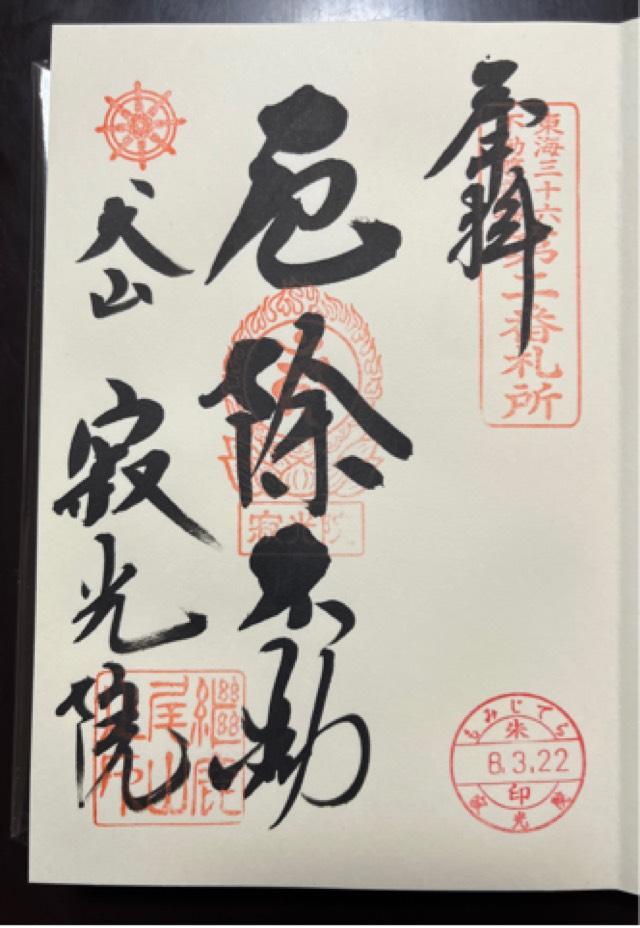 奉拝
東海三十六
不動尊
第二番札所
厄除不動
寂光院
犬山 寂光院
繼鹿
尾山
もみじでら
朱
8.3.22
印
寂光院